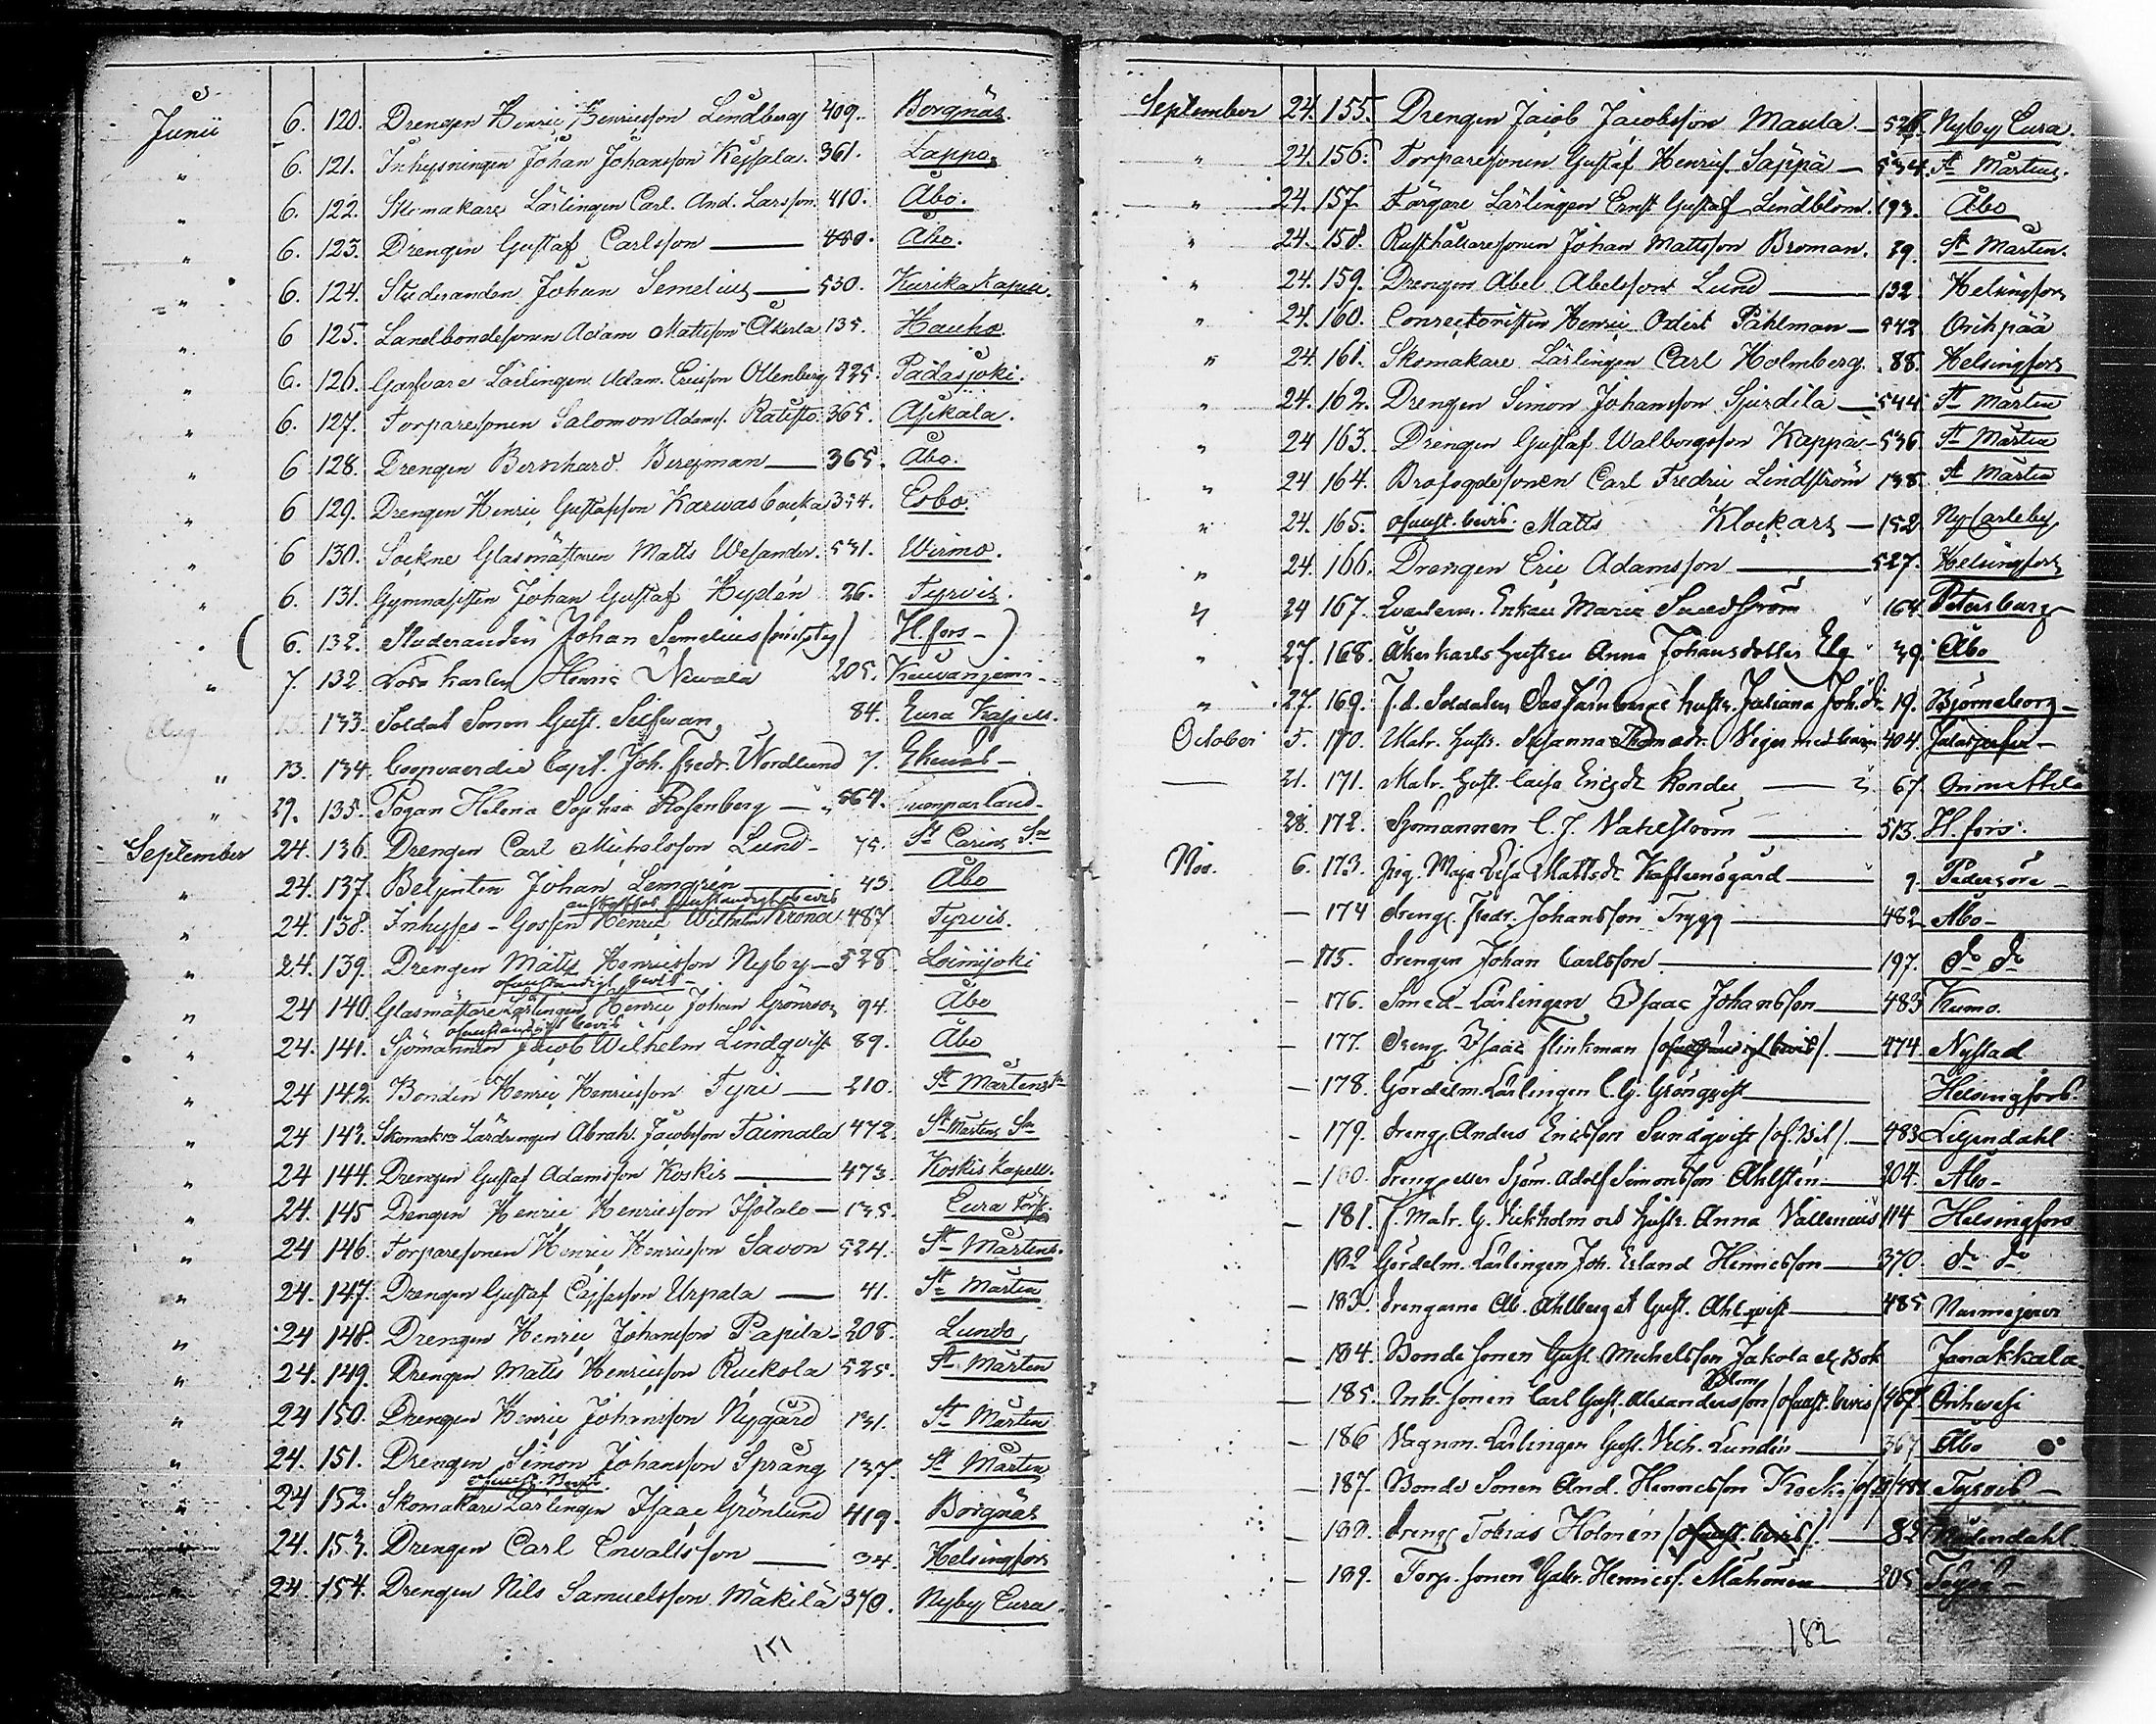 Junii 6. 120. Drengen Henric Henricsson Lindberg 409. Borgnäs.
" 6. 121. Inhysningen Johan Johansson Kejsala. 361. Lappo.
" 6. 122. Skomakare Lärlingen Carl. And. Larsson. 410. Åbo.
" 6. 123. Drengen Gustaf Carlsson 480. Åbo.
" 6. 124. Studeranden Johan Semelius 530. Kurika Kapell.
" 6 125. Landbondesonen Adam Mattsson Åkerla 135. Hauho.
" 6. 126. Garfvare Lärlingen Adam Ericsson Ollenberg 425. Padasjoki.
" 6. 127. Torparesonen Salomon Adams. 365. Asikala.
" 6 128. Drengen Bernhard Bergman 365. Åbo.
" 6 129. Drengen Henric Gustafsson 354. Esbo.
" 6 130. Sockne Glasmästaren Matts Wesander. 531. Wirmo.
" 6. 131. Gymnasisten Johan Gustaf Hydén 26. Tyrvis.
( 6. 132. Studeranden Johan Semelius H.fors - )
" 7. 132 Henric Newala 205. Keuvanjemi
Aug 13. 133. Soldat Sonen Gust. Selfwan 84. Eura Kapell.
" 13. 134. Coopvaerdie Capt. Joh. Fredr. Nordlund 7. Ekenäs -
" 29. 135. Pigan Helena Sophia Rosenberg 564.
September 24. 136. Drengen Carl Michelsson Lund - 75. St Carins Sn
" 24. 137. Johan Lemgrén 43 Åbo
" 24. 138. Inhyses - Gossen Henric Wilhelm Krona 487 Tyrvis.
" 24. 139. Drengen Matts Henricsson Nyby - 528. Loimijoki
ofullständigt bevis -
" 24 140. Glasmästare Lärlingen Henric Johan Grönroos 94. Åbo
ofullständigt bevis
" 24. 141. Sjömannen Jacob Wilhelm Lindqvist 89. Åbo
" 24 142. Bonden Henric Henricsson Tyri 210. St Mårtens Sn
" 24 143. Skomakre Lärdrengen Abrah. Jacobsson Taimala 472 St Mårtens Sn
" 24 144. Drengen Gustaf Adamsson Koskis 473. Koskis Kapell.
" 24. 145 Drengen Henric Henricsson Isotalo 135. Eura
" 24 146. Torparesonen Henric Henricsson Savon 524. St Mårtens.
" 24. 147. Drengen Gustaf Cajsasson Urpala 41. St Mårten
" 24 148. Drengen Henric Johansson Papila - 208. Lundo
" 24. 149. Drengen Matts Henricsson Ruckola 525. St Mårten
" 24 150. Drengen Henric Johansson Nygård 131. St Mårten
" 24. 151. Drengen Simon Johansson Sprang 137. St Mårten
" 24 152. Skomakare Lärlingen Isaac Grönlund 419. Borgnäs
" 24. 153. Drengen Carl Envaldsson 34. Helsingfors
24. 154. Drengen Nils Samuelsson Mäkilä 370. Nyby Eura
151
September 24. 155. Drengen Jacob Jacobsson Maula Nyby Eura.
" 24. 156. Torparesonen Gustaf Henrics. Säppä 534. St Mårtens.
" 24. 157 Färgare Lärlingen Ernst Gustaf Lindblom. 193. Åbo
" 24. 158. Rusthållaresonen Johan Mattsson Broman. 89. St Mårten.
" 24. 159. Drengen Abel Abelsson Lund 132 Helsingfors
" 24. 160. Conrectoristen Henric Odert Påhlman 542 Orihpää
" 24 161. Skomakare Lärlingen Carl Holmberg. 88. Helsingfors
" 24. 162. Drengen Simon Johansson Sjurdila 544. St Mårten
" 24 163. Drengen Gustaf Walborgsson Kappa 536 St Mårten
" 24 164. Brofogdesonen Carl Fredric Lindström 138. St Mårten
" 24. 165. ofullst. bevis. Matts Klockars 152 Ny Carleby
" 24. 166. Drengen Eric Adamsson 527. Helsingfors
" 24 167. Enkan Maria Sundström 164. Petersburg
" 27. 168. Åkerkarls hustru Anna Johansdotter Elg 39. Åbo
" 27. 169. F.d. Soldaten hustr. Juliana Joh.dr 19. Björneborg -
October 5. 170. Matr. hustr. Susanna Thomdr. 404.
21. 171. Matr. hust. Caisa Ericsdr 67. Orimattila
28. 172. Sjömannen C. J. Vahlström 513. H.fors.
Nov. 6. 173. Pig. Maja Lisa Mattsdr 9. Pedersöre -
- 174 Dreng. Fredr. Johansson Trygg 482 Åbo -
- 175. Drengen Johan Carlsson 197. do do
- 176. Smed-Lärlingen Isaac Johansson 483 Kumo.
- 177. Dreng. Isaac Flinkman /ofullständigt bevis/. 474. Nystad
- 178. Gördelm. Lärlingen C. G. Grönqvist Helsingfors.
- 179. Dreng. Anders Ericsson Sundqvist /of. Bev/. 483 Liljendahl
- 180. Dreng eller Sjöm. Adolf Simonsson Ahlstén 204. Åbo -
- 181. F. Matr. G. Vickholm och hustr. Anna Vallenius 114 Helsingfors
182 Gördelm. Lärlingen Joh. Erland Henricsson 370. do do
- 183. Drengarne Ab. Ahlberg et Gust. Ahlqvist 485 Nurmijervi
- 184. Bonde Sonen Gust. Michelsson Jakola Janakkala
- 185. Inh. Sonen Carl Gust. Alexandersson /ofullst. bevis/ 467. Orihvesi
- 186 Vagnm. Lärlingen Gust. Vilh. Lundén 367 Åbo
- 187. Bonde Sonen And. Henricsson 488 Tyrvis -
- 188. Dreng Tobias Holmén /ofullst. bevis/. Nådendahl.
- 189. Torp. sonen Gabr. Henrics. Mähönen 205
182